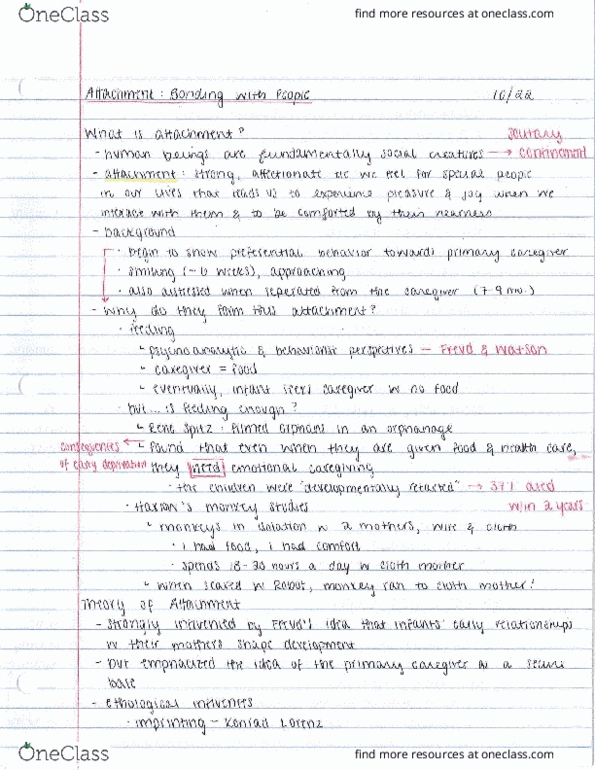 OneClass
find more resources at oneclass.com
Attachment: Bonding with People 10/22
What is attachment? solitary
- human beings are fundamentally social creatures → confinement
- attachment: strong, affectionate tie we feel for special people
in our lives that leads us to experience pleasure & joy when we
interact with them & to be comforted by their nearness
- background
· begin to show preferential behavior towards primary caregiver
· smiling (~6 weeks), approaching
· also distressed when seperated from the caregiver (7-9 mo.)
- Why do they form this attachment?
· feeding
psychoanalytic & behaviorist perspectives - Freud & Watson
caregiver = food
eventually, infant seeks caregiver w no food
· but... is feeding enough?
Rene Spitz: filmed orphans in an orphanage
consequences ← found that even when they are given food & health care,
of early deprivation they need emotional caregiving
· the children were "developmentally retarted" → 37% died
· Harlow's monkey studies w/in 2 years
monkeys in isolation w 2 mothers, wire & cloth
· 1 had food, 1 had comfort
· spends 18-20 hours a day w cloth mother
when scared w Robot, monkey ran to cloth mother!
Theory of Attachment
- strongly influenced by Freud's idea that infants' early relationships
w their mothers shape development
- but emphasized the idea of the primary caregiver as a secure
base
- ethological influences
· imprinting - Konrad Lorenz
OneClass
find more resources at oneclass.com